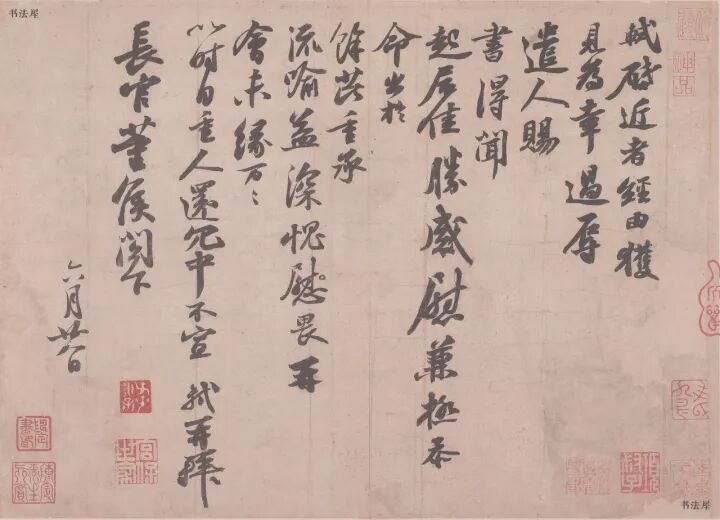 书法犀
軾啓近者經由獲
見為幸過辱
遣人賜
書得聞
起居佳勝感慰兼極忝
命出於
餘芘重承
流喻益深愧慰畏再
會未緣萬〻
以時自重人還冗中不宣 軾再拜
長官董侯閤下
六月廿八日
书法犀